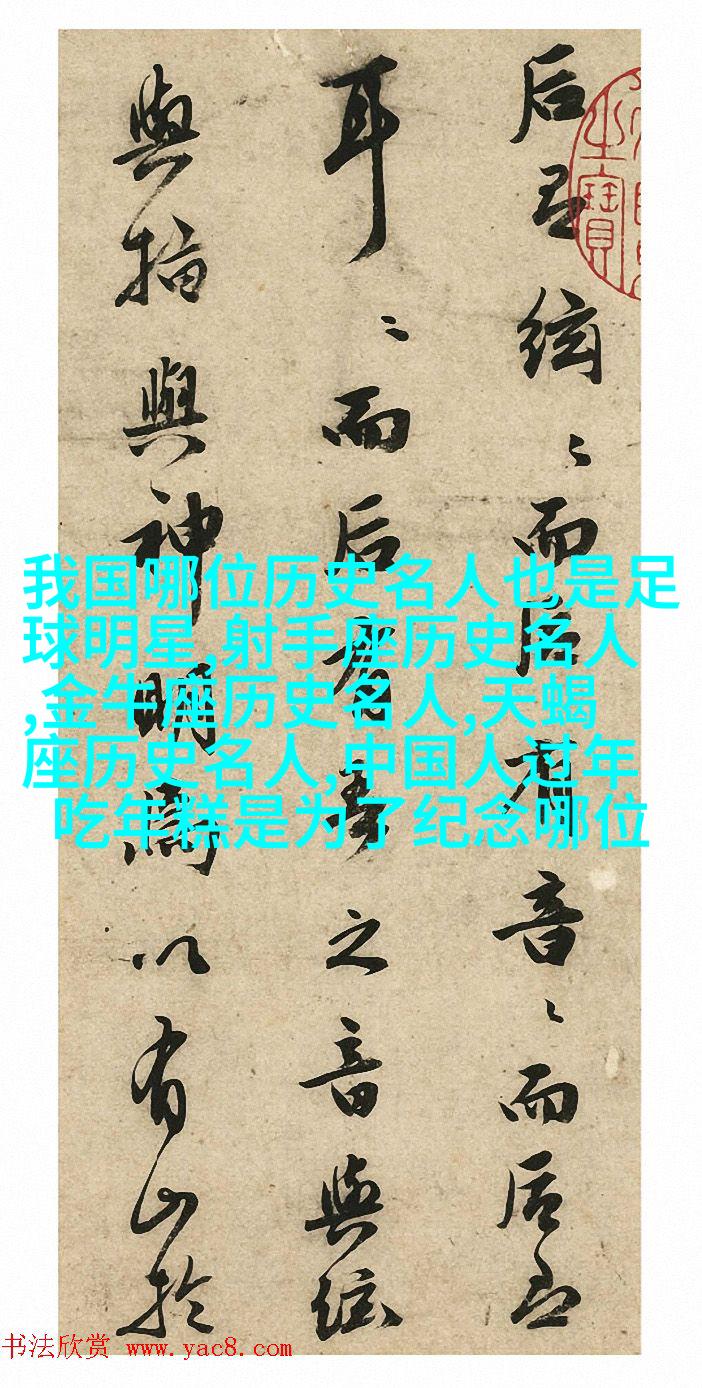 后絃〻而后有音〻而后
耳〻而后有琴之音與絃
與指與神明為以有山於
之寶
我国哪位历史名人也是足
球明星,射手座历史名人
,金牛座历史名人,天蝎
座历史名人,中国人过年
吃年糕是为了纪念哪位
书法欣赏 www.yac8.com